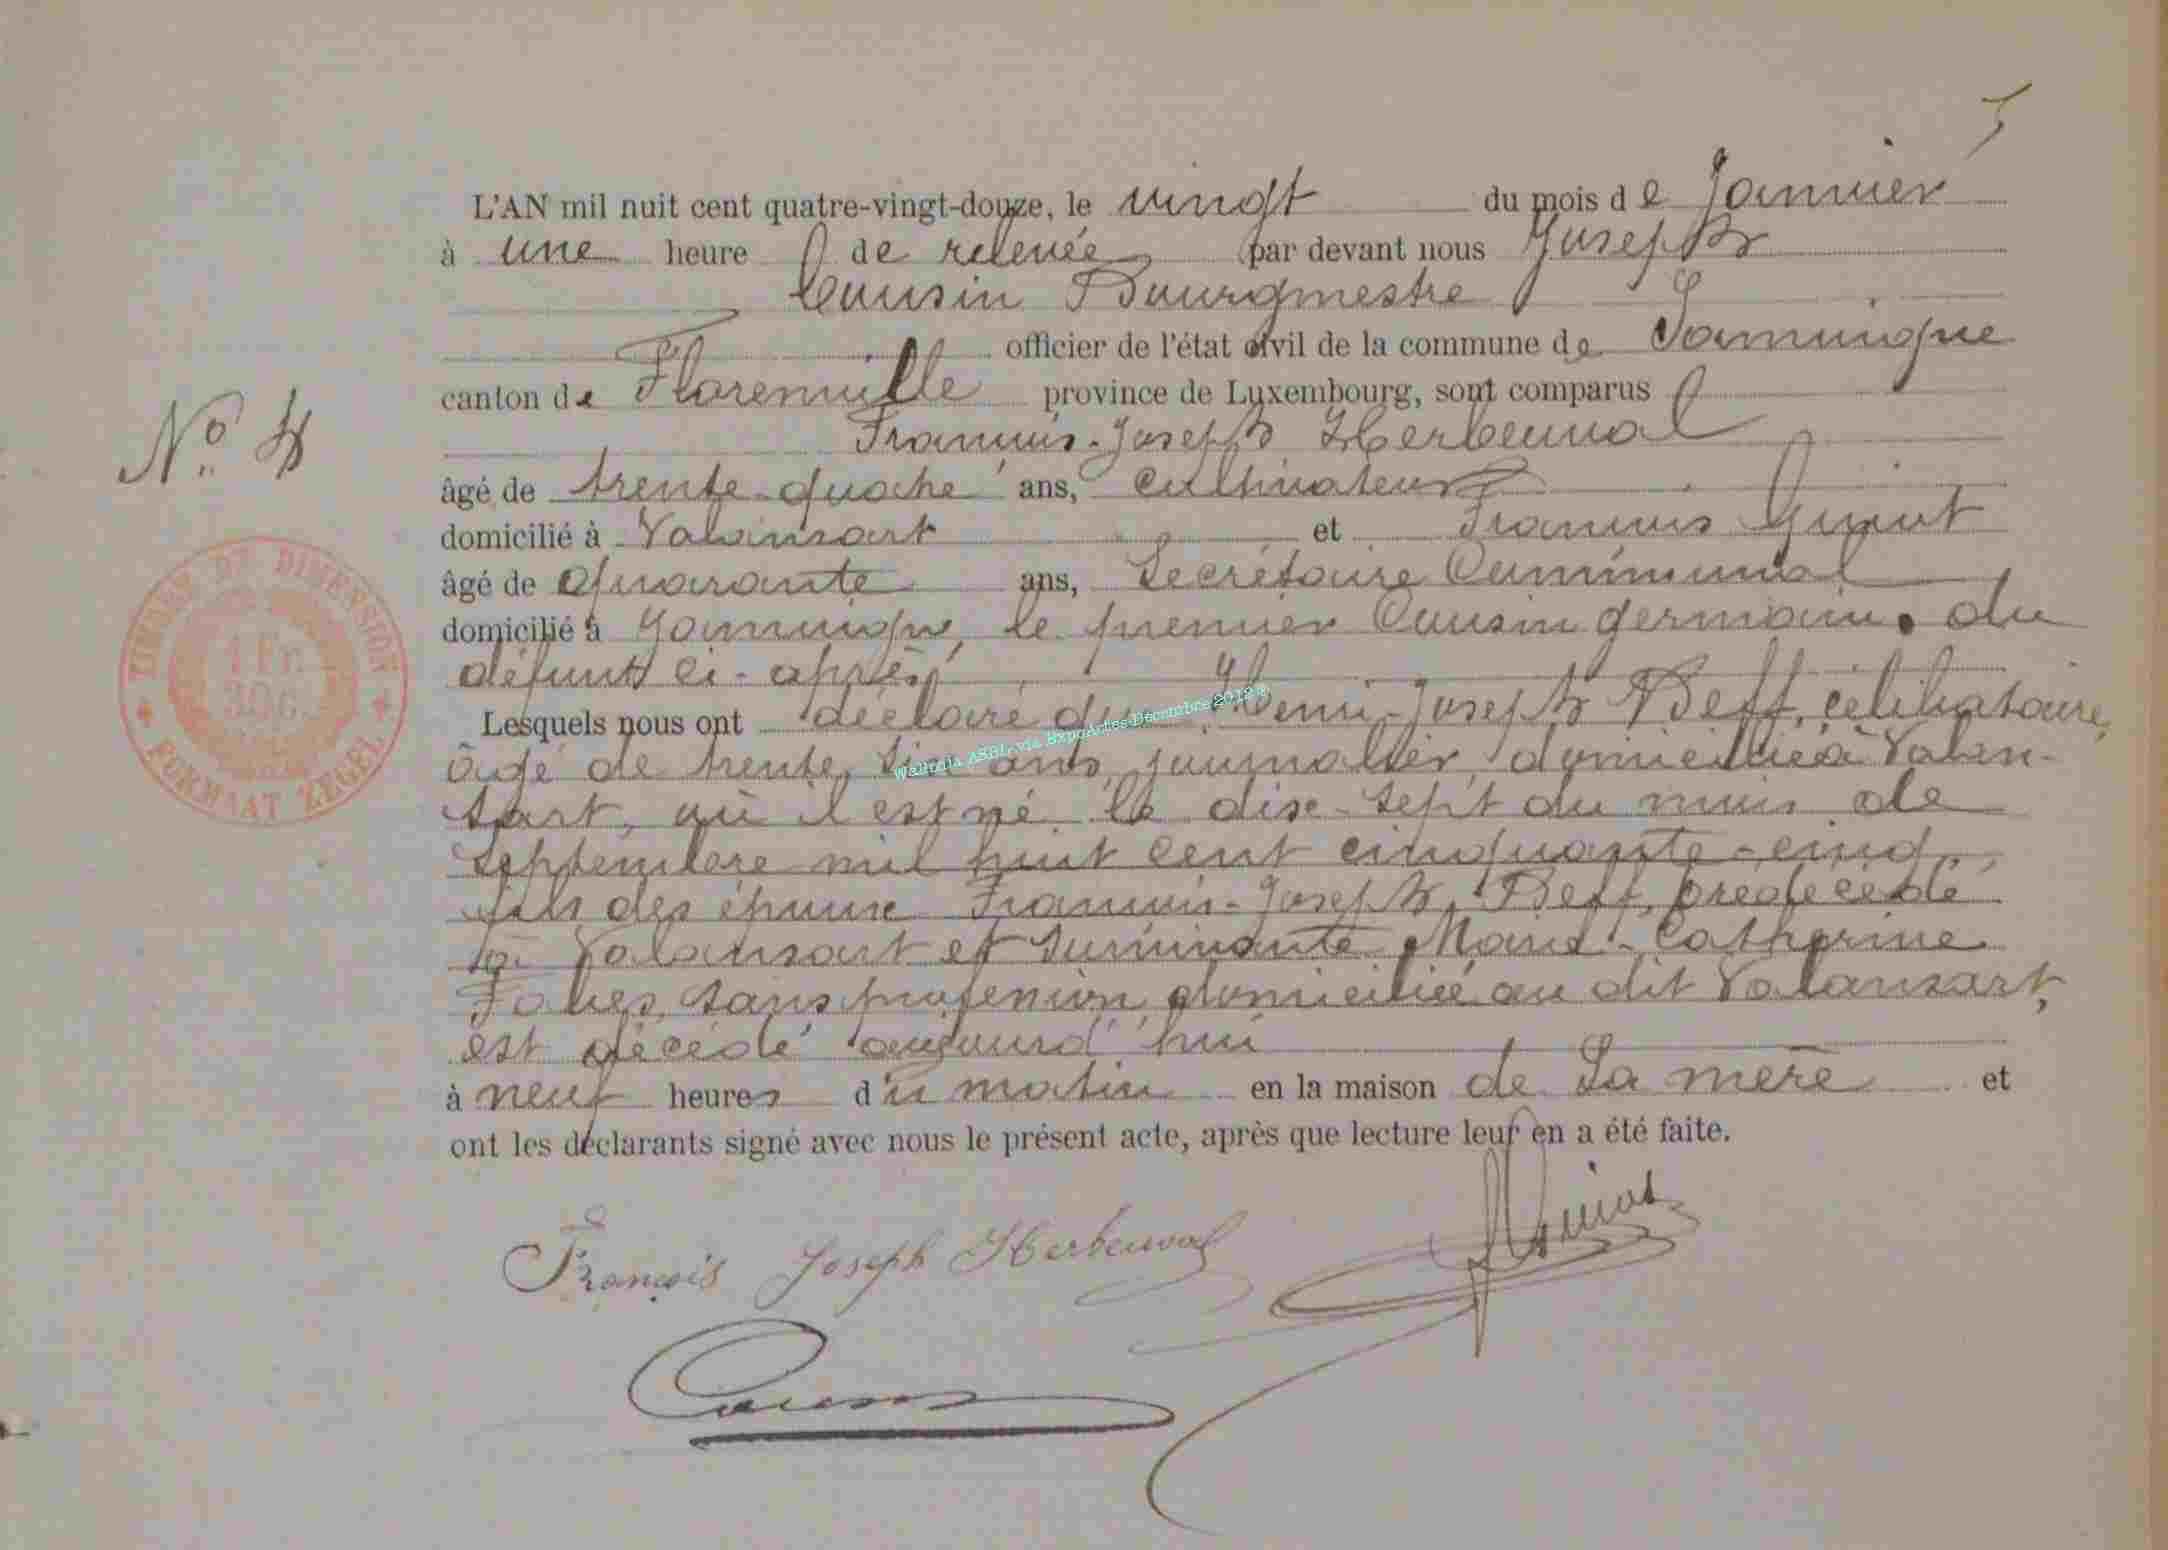 5
L'AN mil huit cent quatre-vingt-douze, le vingt du mois de Janvier
à une heure de relevée par devant nous Joseph
Cousin Bourgmestre
officier de l'état civil de la commune de Jamoigne
canton de Florenville province de Luxembourg, sont comparus
François-Joseph Herbeuval
N° 4
âgé de trente-quatre ans, cultivateur
domicilié à Valansart et François
âgé de quarante ans, Secrétaire Communal
domicilié à Jamoigne, le premier Cousin germain du
défunt ci-après
Lesquels nous ont déclaré que Henri-Joseph Beff, célibataire,
âgé de trente six ans, journalier, domicilié à Valan-
sart, où il est né le dix-sept du mois de
Septembre mil huit cent cinquante-cinq,
fils des époux François-Joseph Beff, prédécédé
à Valansart et survivante Marie-Catherine
sans profession, domiciliée au dit Valansart,
est décédé aujourd'hui
à neuf heures du matin en la maison de Sa mère et
ont les déclarants signé avec nous le présent acte, après que lecture leur en a été faite.
François Joseph Herbeuval
Cousin
TIMBRE DE DIMENSION
1 Fr.
30 C.
FORMAAT ZEGEL
Wallonia ASBL via ExpoActes Décembre 2012 ©